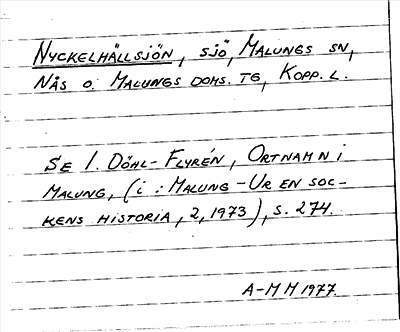 NYCKELHÄLLSJÖN, SJÖ, MALUNGS SN,
NÅS O. MALUNGS DOMS. TG, KOPP. L.
SE I. DÖHL-FLYRÉN, ORTNAMN I
MALUNG, (I : MALUNG - UR EN SOC-
KENS HISTORIA, 2, 1973), S. 274.
A-M M 1977